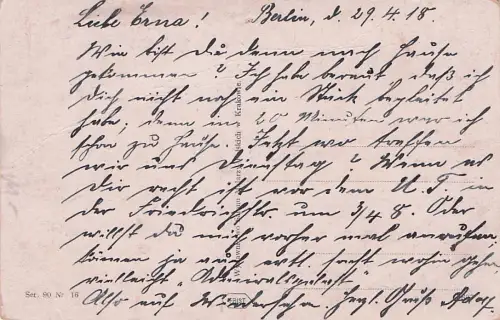 Liebe Erna! Berlin, d. 29.4.18.
Wie bist du denn nach Hause
gekommen? Ich habe bereut daß ich
Dich nicht noch ein Stück begleitet
habe, denn in 20 Minuten war ich
schon zu Hause. Jetzt wo treffen
wir uns Dienstag? Wenn es
Dir recht ist vor dem U. T. in
der Friedrichstr. um 3/4 8. Oder
willst du mich vorher mal anrufen
können ja auch evtl. sonst wohin gehn
vielleicht "Admiralspalast"
Also auf Wiedersehn. Herzl. Gruß
Ser. 90 Nr 16